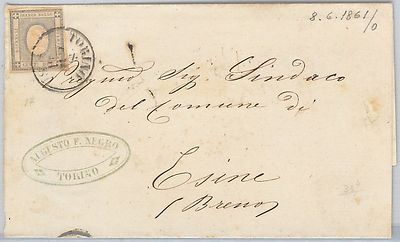 8.6.1861/0
FRANCO BOLLO
TORINO
8
Pregmo Sig. Sindaco
del Comune di
Esine
(Breno)
AUGUSTO F. NEGRO
TORINO